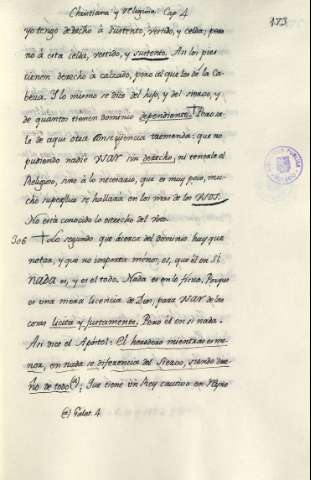 Christiana y religiosa. Cap. 4
173
yo tengo derecho à sustento, vestido, y celda; pero
no à esta celda, vestido, y sustento. Asi los pies
tienen derecho à calzado, pero al que los dè la Ca-
beza. Y lo mismo se dice del hijo, y del siervo, y
de quantos tienen dominio dependiente.
le de aqui otra consequencia tremenda: que no
pudiendo nadie usar sin derecho, ni
Religioso, sino à lo necesario, que es muy poco, mu-
cho superfluo se hallarà en los mas de los usos.
No està conocido lo estrecho del
306 + Lo segundo que acerca del dominio hay que
notar, y que no importa menos, es, que èl en sì
nada es, y es el todo. Nada es en lo fisico. Porque
es una mera licencia de Dios, para usar de las
cosas licita y justamente. Pero èl en sì nada.
Asi dice el Apòstol: El heredero mientras es me-
nor, en nada se diferencia del siervo, siendo due-
ño de todo (*). Que tiene un Rey cautivo en
(*) Galat. 4.